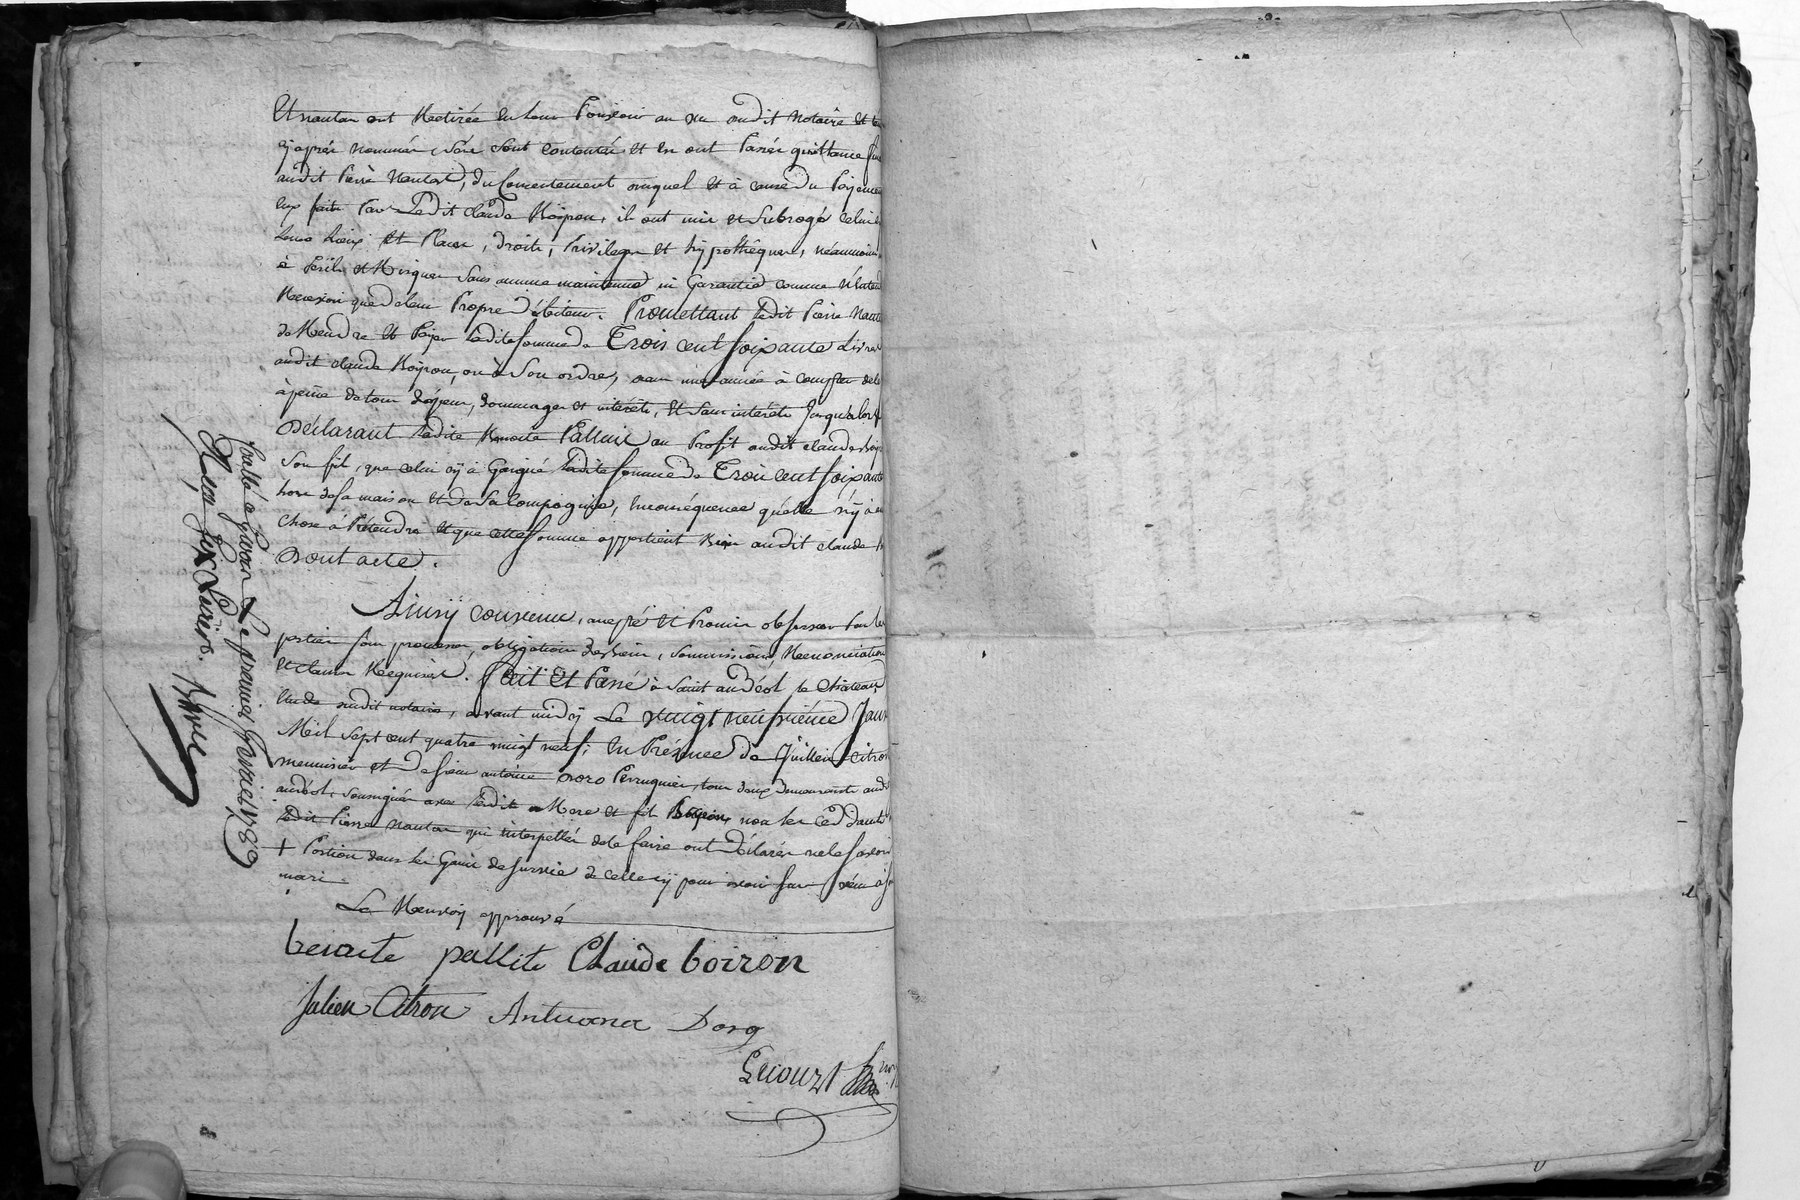 et nauton ont Retirée en leur Pouvoir au vu dudit notaire et
cy après nommés, s'en sont contentés et en ont Passée quittance
audit Pierre Nauton, du Consentement duquel et à cause du Payement
eux fait Par Ledit Claude Boiron, il ont mis et Subrogé celui
Leurs Lieux et Places, droits, Privileges et hypothéques, néanmoins
à Périls et Risques sans aucune maintenue ni Garantie comme
que de leur Propre Débiteur. Promettant Ledit Pierre
de Rendre et Payer Laditte Somme de Trois cent soixante Livres
audit Claude Boiron, ou à Son ordre, dans une année à compter de
à peine de tous dépens, dommages et intérêts, et Sans intérêts Jusqu'alors
Déclarant Laditte Benoite Palluit au Profit dudit Claude
Son fils, que celui cy à Gaigné Laditte Somme de Trois cent soixante
hors de Sa maison et de Sa Compagnie, Enconséquence quelle n'y à
chose à Prétendre et que cette Somme appartient Bien audit Claude
Dont acte.
Ainsy convenu, accepté et Promis observer Par les
parties sous promesses, obligation de biens, Soumissions, Renonciation
et clauses Requises. fait et Passé à Saint andéol le Chateau
Etude dudit notaire, avant midy Le vingt neufvième
Mil Sept cent quatre vingt neuf; En Présence de Jullien Citron
menuisier et De Sieur antoine Doro Perruquier, tous deux demeurants
andéol, soussignés avec lesdits Mere et fils Boiron, non les
Ledit Pierre Nauton qui interpellés de le faire ont Déclarés ne le savoir
+ Portion dans les Gains de survie de celle cy pour avoir survécu à
mari.
Le Renvoy approuvé
benoite pallite Claude boiron
Julien Citron Antuana Doro
Lecourt
Collé à Givors Le premier fevrier 1789
Reçu six Livres.